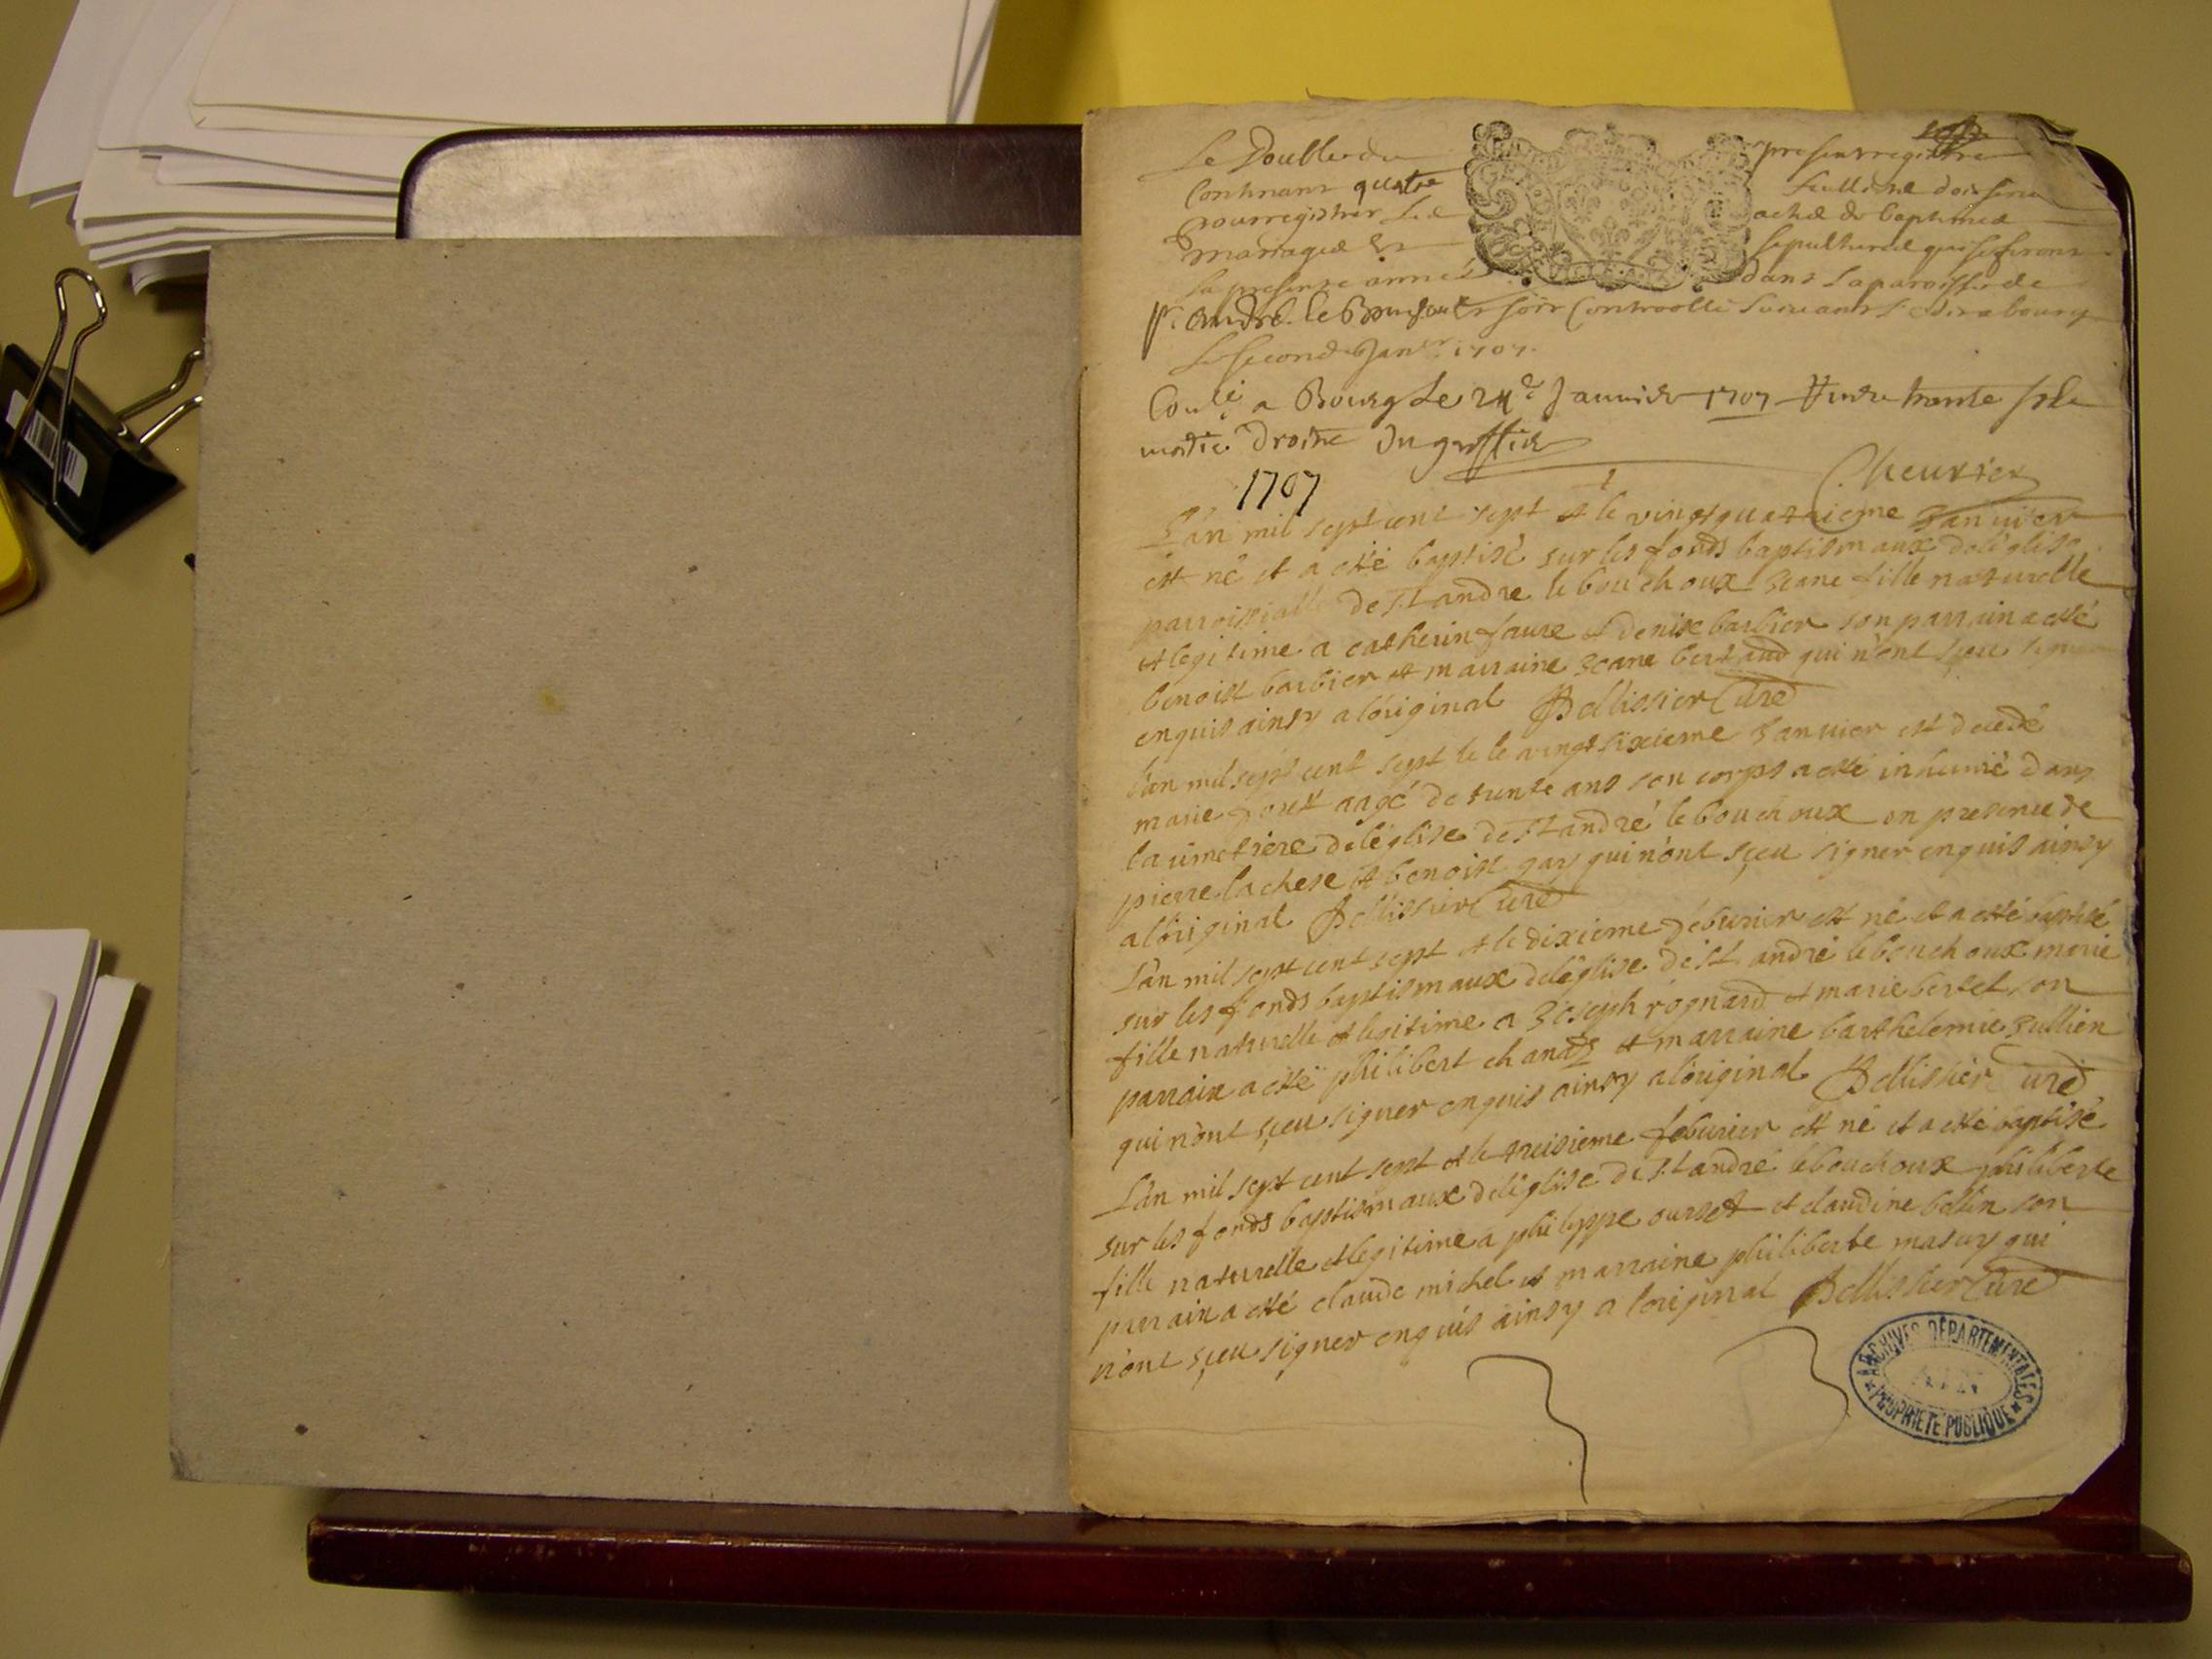 Le Double du present registre
Contenant quatre feullies doit servir
pour registrer les actes de baptemes
mariages et sepultures qui se feront
la presente année dans la paroisse de
St André le Bouchoux sera Controllé a bourg
Le second Janer 1707
Conlé a Bourg Le 24e Janvier 1707 trente sols
moitié droits du greffier
Cheurier
1707
L'an mil sept cent sept et le vingt quatrieme Janvier
est né et a esté baptisé sur les fonds baptismaux de léglise
parroissialle de St andre le bouchoux Jeane fille naturelle
et legitime a catherin faure et denise barbier son parrain a esté
benoist barbier et marraine Jeane bertaud qui n'ont sçeu signer
enquis ainsy a lóriginal Pellissier Curé
L'an mil sept cent sept le le vingt sixieme Janvier est decedé
marie aagé de trente ans son corps a esté inhumé dans
la cimetiere de léglise de St andré le bouchoux en presence de
pierre lachese et benoist gay qui n'ont sçeu signer enquis ainsy
a lóriginal Pellissier Curé
L'an mil sept cent sept et le dixieme feburier est né et a esté baptisé
sur les fonds baptismaux de léglise de St andré le bouchoux marie
fille naturelle et legitime a Joseph rognard et marie bertet son
parrain a esté philibert chanas et marraine barthelemie Jullien
qui n'ont sçeu signer enquis ainsy a lóriginal Pellissier Curé
L'an mil sept cent sept et le treisieme feburier est né et a esté baptisé
sur les fonds baptismaux de léglise de St andré le bouchoux philiberte
fille naturelle et legitime a philippe ourset et claudine bellin son
parrain a esté claude michel et marraine philiberte masuy qui
n'ont sçeu signer enquis ainsy a loriginal Pellissier Curé
ARCHIVES DÉPARTEMENTALES
AIN
PROPRIÉTÉ PUBLIQUE